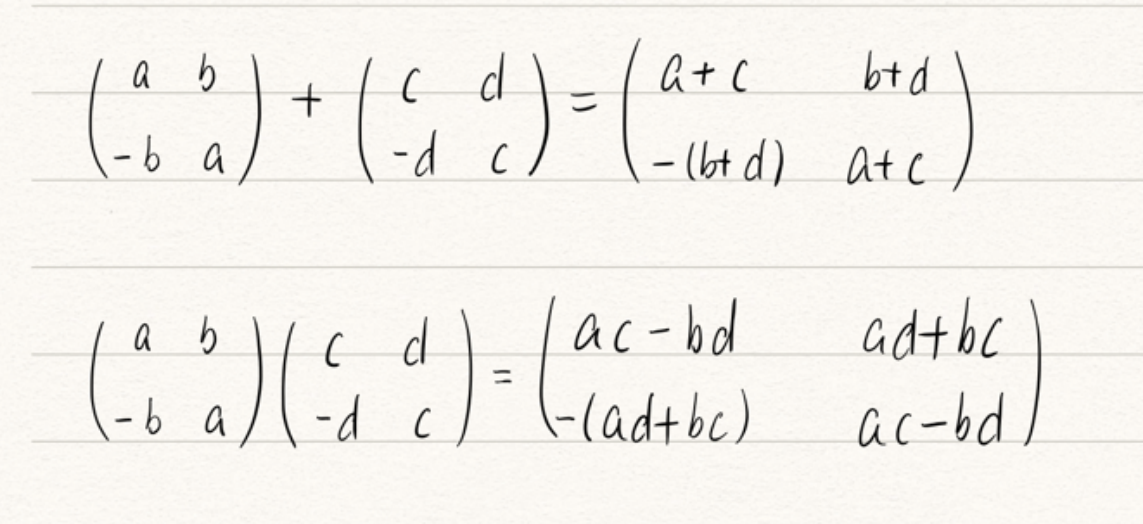 $\begin{pmatrix} a & b \\ -b & a \end{pmatrix} + \begin{pmatrix} c & d \\ -d & c \end{pmatrix} = \begin{pmatrix} a+c & b+d \\ -(b+d) & a+c \end{pmatrix}$
$\begin{pmatrix} a & b \\ -b & a \end{pmatrix} \begin{pmatrix} c & d \\ -d & c \end{pmatrix} = \begin{pmatrix} ac-bd & ad+bc \\ -(ad+bc) & ac-bd \end{pmatrix}$